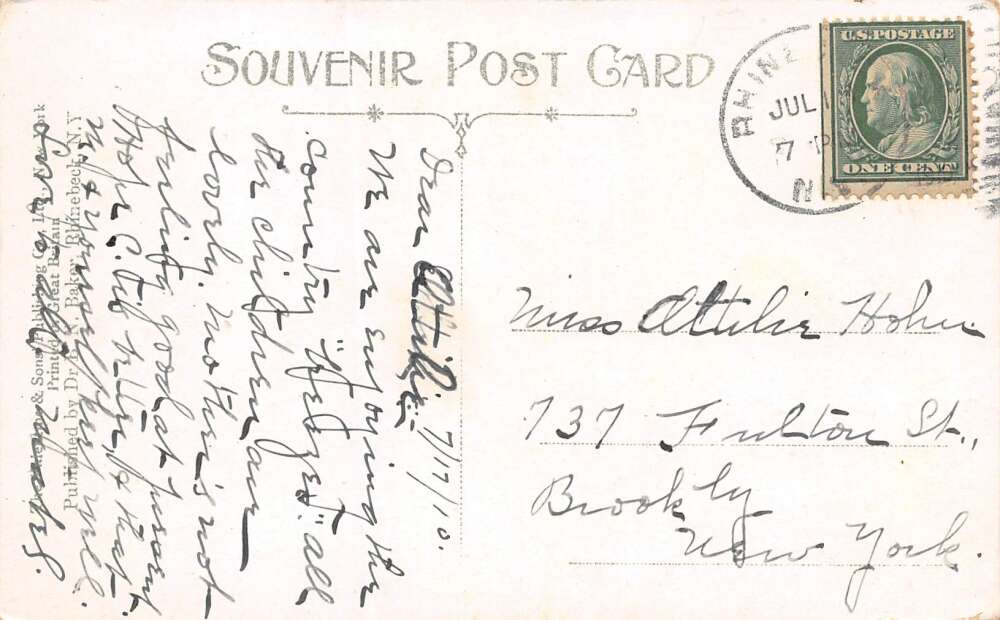 SOUVENIR POST CARD
U.S. POSTAGE
ONE CENT
RHINE
JUL 1
7 P
N
Miss Ottilie Hohn
737 Fulton St.,
Brookly
New York.
Dear Ottilie:- 7/17/10.
We are enjoying the
country all
the children are
lovely. Mother is not
feeling good at present.
Hope C. O is better & that
& yourself
& Sons Printing Co., Ltd., New York
Printed in Great Britain
Published by Dr. B. N. Baker, Rhinebeck, N.Y